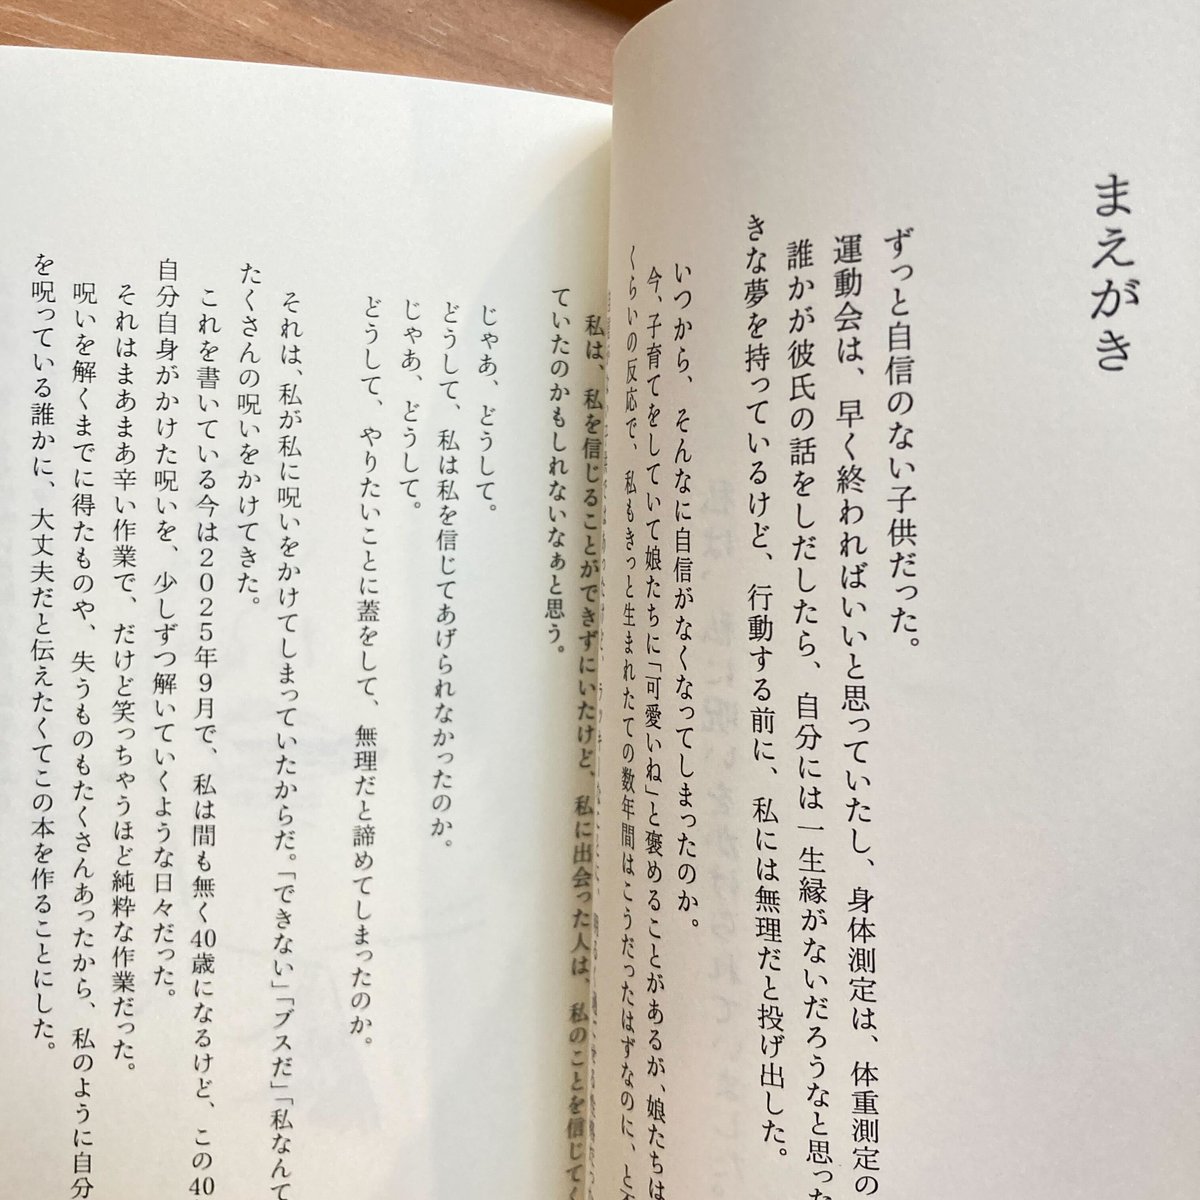 まえがき
ずっと自信のない子供だった。
運動会は、早く終わればいいと思っていたし、身体測定は、体重測定の
誰かが彼氏の話をしだしたら、自分には一生縁がないだろうなと思った
きな夢を持っているけど、行動する前に、私には無理だと投げ出した。
いつから、そんなに自信がなくなってしまったのか。
今、子育てをしていて娘たちに「可愛いね」と褒めることがあるが、娘たちは
くらいの反応で、私もきっと生まれたての数年間はこうだったはずなのに、と
私は、私を信じることができずにいたけど、私に出会った人は、私のことを信じてく
ていたのかもしれないなぁと思う。
じゃあ、どうして。
どうして、私は私を信じてあげられなかったのか。
じゃあ、どうして。
どうして、やりたいことに蓋をして、無理だと諦めてしまったのか。
それは、私が私に呪いをかけてしまっていたからだ。「できない」「ブスだ」「私なんて
たくさんの呪いをかけてきた。
これを書いている今は2025年9月で、私は間も無く40歳になるけど、この40
自分自身がかけた呪いを、少しずつ解いていくような日々だった。
それはまあまあ辛い作業で、だけど笑っちゃうほど純粋な作業だった。
呪いを解くまでに得たものや、失うものもたくさんあったから、私のように自分
を呪っている誰かに、大丈夫だと伝えたくてこの本を作ることにした。